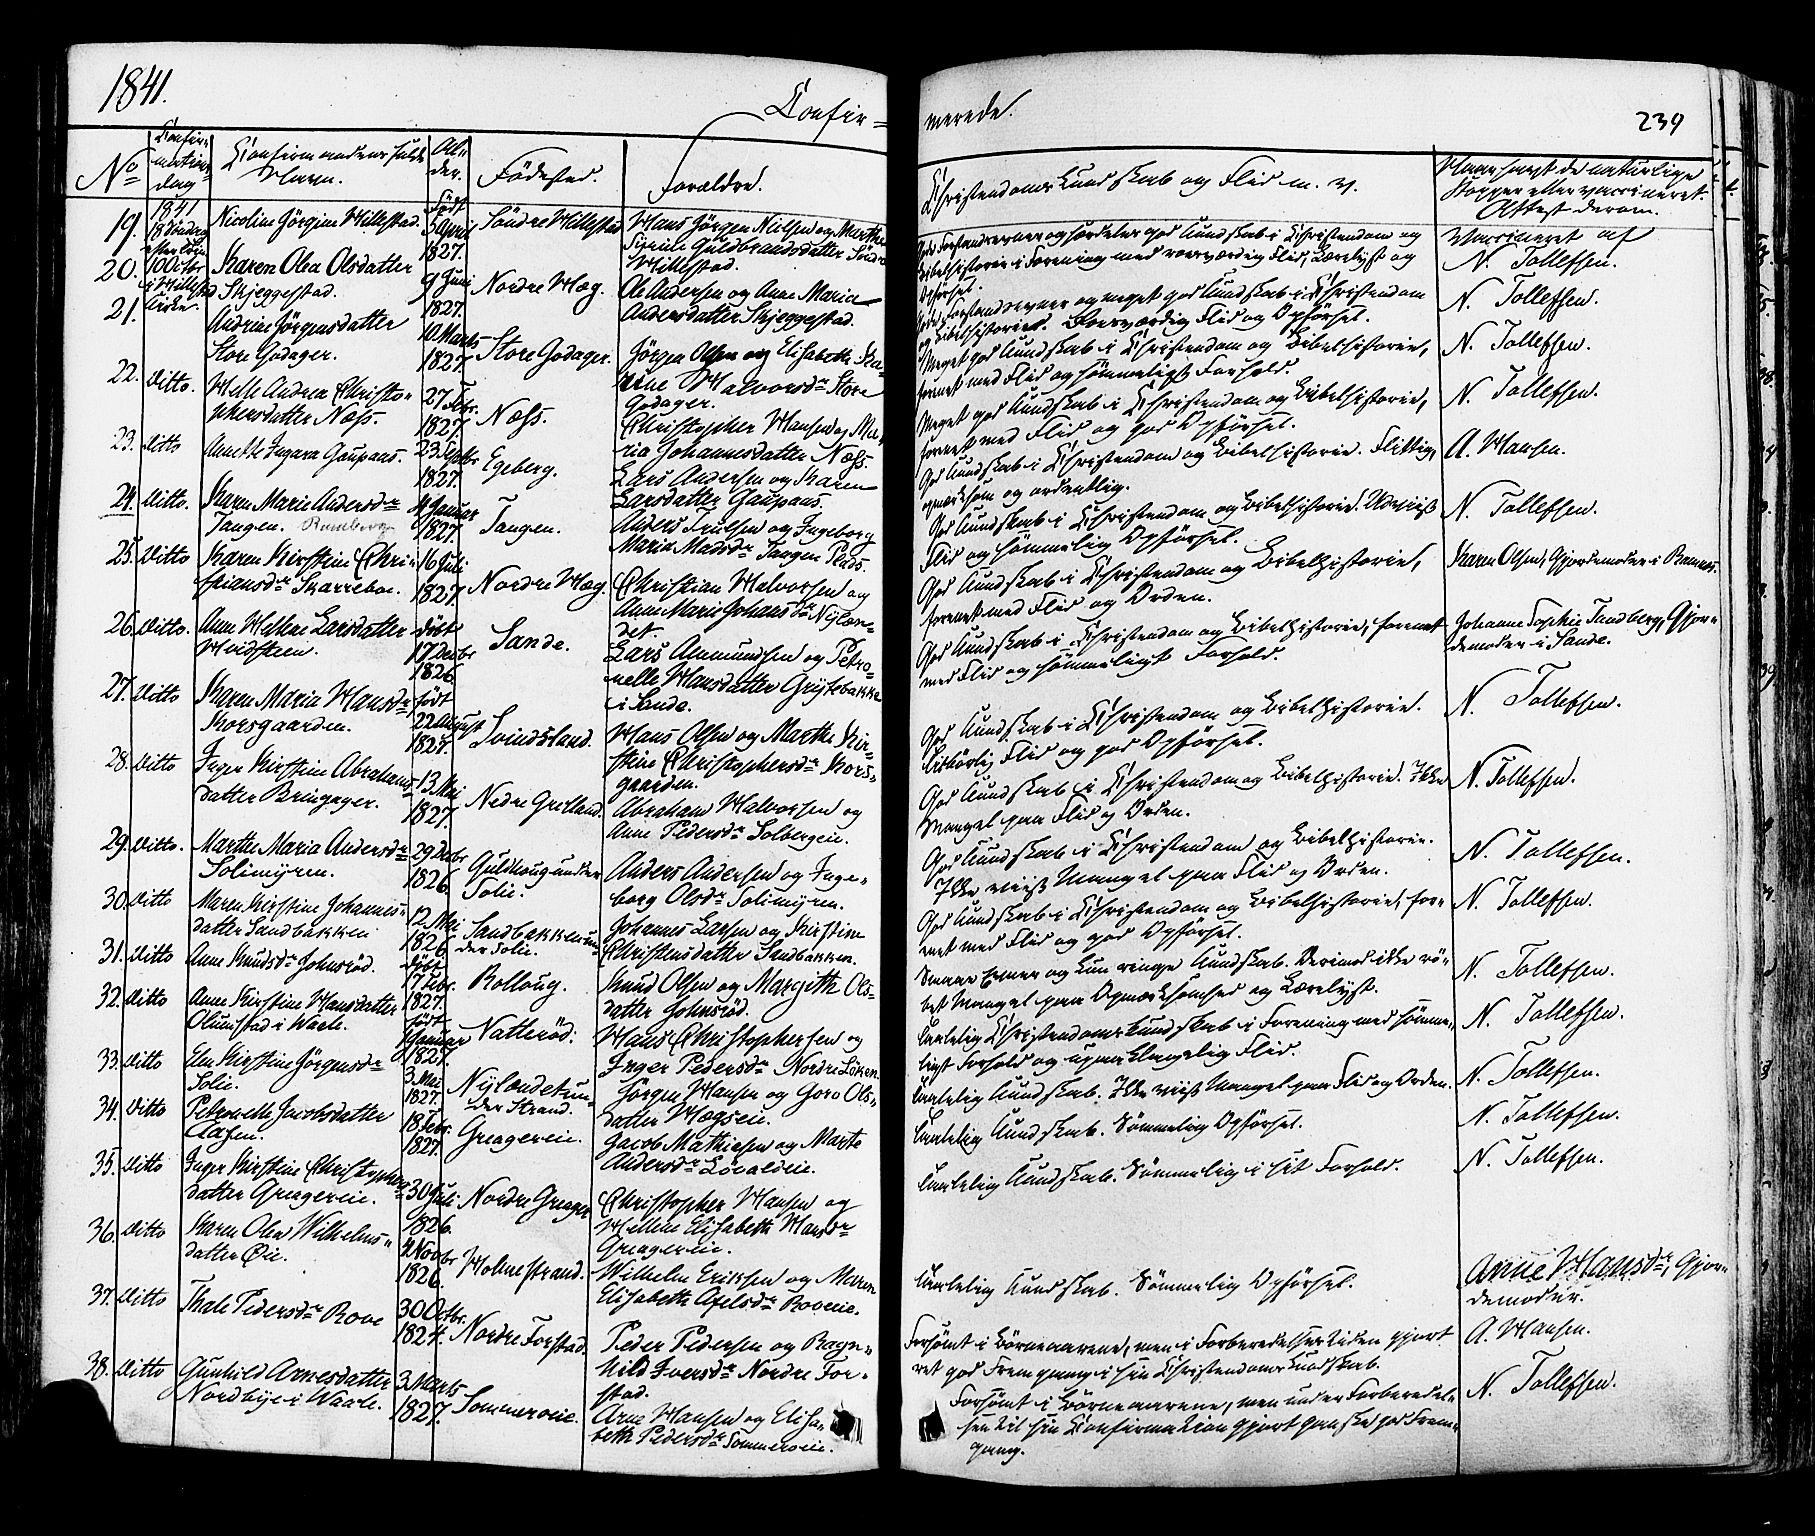 1841.
Confir=
merede.
239
No
Confir-
mations
dag
Confirmandens fulde
Navn.
Al-
der.
Födested.
Forældre.
Christendoms Kundskab og Flid m. v.
Naar havt de naturlige
Kopper eller vaccineret.
Attest derom.
19.
1841
18 Söndag
efter Trin.
10 Octbr
i Hillestad
Kirke.
Nicoline Jörgine Hillestad.
Födt
5 April
1827.
Söndre Hillestad
Hans Jörgen Nielsen og Marthe
Sirine Guldbrandsdatter Söndre
Hillestad.
Gode Forstandsevner og særdeles god Kundskab i Christendom og
Bibelhistorie i Forening med roesværdig Flid, Lærelyst og
Opförsel.
Vaccineret af
N. Tollefsen.
20.
Karen Olea Olsdatter
Skjeggestad.
9 Juni
1827.
Nordre Hæg.
Ole Andersen og Anne Maria
Andersdatter Skjeggestad.
Gode Forstandsevner og meget god Kundskab i Christendom
og Bibelhistorie. Roesværdig Flid og Opförsel.
N. Tollefsen.
21.
Andrine Jörgensdatter
Store Godager.
10 Marts
1827.
Store Godager.
Jörgen Olsen og Elisabeth Ka-
trine Halvorsdr Store
Godager.
Meget god Kundskab i Christendom og Bibelhistorie,
forenet med Flid og sömmeligt Forhold.
N. Tollefsen.
22.
Ditto.
Helle Andrea Christo-
phersdatter Næss.
27 Febr.
1827.
Næss.
Christopher Hansen og Ma-
ria Johannesdatter Næss.
Meget god Kundskab i Christendom og Bibelhistorie,
forenet med Flid og god Opförsel.
N. Tollefsen.
23.
Ditto
Annette Ingara Gaupaas.
23 Septbr
1827.
Egeberg.
Lars Andersen og Karen
Larsdatter Gaupaas.
God Kundskab i Christendom og Bibelhistorie. Flittig,
opmærksom og ordentlig.
A. Hansen.
24.
Ditto.
Karen Marie Andersdr
Tangen. Ramberg
4 Januar
1827.
Tangen.
Anders Truelsen og Ingeborg
Maria Madsdr Tangen Plads.
God Kundskab i Christendom og Bibelhistorie. Udviist
Flid og sömmelig Opförsel.
N. Tollefsen.
25.
Ditto
Karen Kirstine Chri-
stiansdr Skarreboe.
16 Juli
1827.
Nordre Hæg.
Christian Halvorsen og
Anne Marie Johansdr Nylæn-
det.
God Kundskab i Christendom og Bibelhistorie,
forenet med Flid og Orden.
Karen Olsen, Gjordemoder i Ramnes.
26.
Ditto.
Anne Helene Larsdatter
Hvidsteen.
födt
17 Decbr
1826
Sande.
Lars Aamundsen og Petro-
nelle Hansdatter Grytebakke
i Sande.
God Kundskab i Christendom og Bibelhistorie, forenet
med Flid og sömmeligt Forhold.
Johanne Sophie Sandberg, Gjor-
demoder i Sande.
27.
Ditto
Karen Maria Hansdr
Korsgaarden.
födt
22 August
1827.
Svindsland.
Hans Olsen og Marthe Kir-
stine Christophersdr Kors-
gaarden.
God Kundskab i Christendom og Bibelhistorie.
Tilbörlig Flid og god Opförsel.
N. Tollefsen.
28.
Ditto
Inger Kirstine Abrahams-
datter Bringager.
13 Mai
1827.
Nedre Grelland.
Abraham Halvorsen og
Anne Pedersdr Solbergeie.
God Kundskab i Christendom og Bibelhistorie. Ikke
Mangel paa Flid og Orden.
N. Tollefsen.
29.
Ditto.
Marthe Maria Andersdr
Solimyren.
29 Decbr
1826
Guldhaug under
Solie.
Anders Andersen og Inge-
borg Olsdr Solimyren.
God Kundskab i Christendom og Bibelhistorie.
Ikke viist Mangel paa Flid og Orden.
N. Tollefsen.
30.
Ditto
Maren Kirstine Johannes-
datter Sandbakken
12 Mai
1826.
Sandbakken un-
der Solie.
Johannes Larsen og Kirstine
Christensdatter Sandbakken.
God Kundskab i Christendom og Bibelhistorie, for-
enet med Flid og god Opförsel.
N. Tollefsen.
31.
Ditto
Anne Knudsdr Johnsröd.
födt
17 Febr.
1827.
Rolloug.
Knud Olsen og Margith Ols-
datter Johnsröd.
Svage Evner og kun ringe Kundskab. Derimod ikke rö-
bet Mangel paa Opmærksomhed og Lærelyst.
N. Tollefsen.
32.
Ditto
Anne Kirstine Hansdatter
Olumstad i Waale.
födt
1 Januar
1827.
Natteröd.
Hans Christophersen og
Inger Pedersdr Nordre Löken
Taalelig Christendomskundskab i Forening med sömme-
ligt Forhold og upaaklagelig Flid.
N. Tollefsen.
33.
Ditto
Elen Kirstine Jörgensdr
Solie.
3 Mai
1827.
Nylændet un-
der Strand.
Jörgen Hansen og Goro Ols-
datter Hægseie.
Taalelig Kundskab. Ikke viist Mangel paa Flid og Orden.
N. Tollefsen.
34.
Ditto
Petronelle Jacobsdatter
Aasen.
18 Febr.
1827.
Greagereie.
Jacob Mathiesen og Marte
Andersdr Lövaldeie.
Taalelig Kundskab. Sömmelig Opförsel.
N. Tollefsen.
35.
Ditto
Inger Kirstine Christophers-
datter Greagereie.
30 Juli
1826.
Nordre Greager
Christopher Hansen og
Hellene Elisabeth Hansdr
Greagereie.
Taalelig Kundskab. Sömmelig i sit Forhold.
N. Tollefsen.
36.
Ditto
Karen Olea Wilhelms-
datter Öie.
4 Novbr
1826.
Holmestrand.
Wilhelm Eriksen og Maren
Elisabeth Axelsdr Roveeie.
Taalelig Kundskab. Sömmelig Opförsel.
Anne Hansdr, Gjor-
demoder.
37.
Ditto
Thale Pedersdr Rove
30 Octbr.
1824.
Nordre Forstad.
Peder Pedersen og Ragn-
hild Iversdr Nordre For-
stad.
Forsömt i Börneaarene, men i Forberedelsestiden gjort
ret god Fremgang i sin Christendomskundskab.
A. Hansen.
38.
Ditto
Gunhild Arnesdatter
Nordbye i Waale.
3 Marts
1827.
Sommeroeie.
Arne Hansen og Elisa-
beth Pedersdr Sommeroeie.
Forsömt i Börneaarene, men under Forberedel-
sen til sin Confirmation gjort ganske god Frem-
gang.
N. Tollefsen.